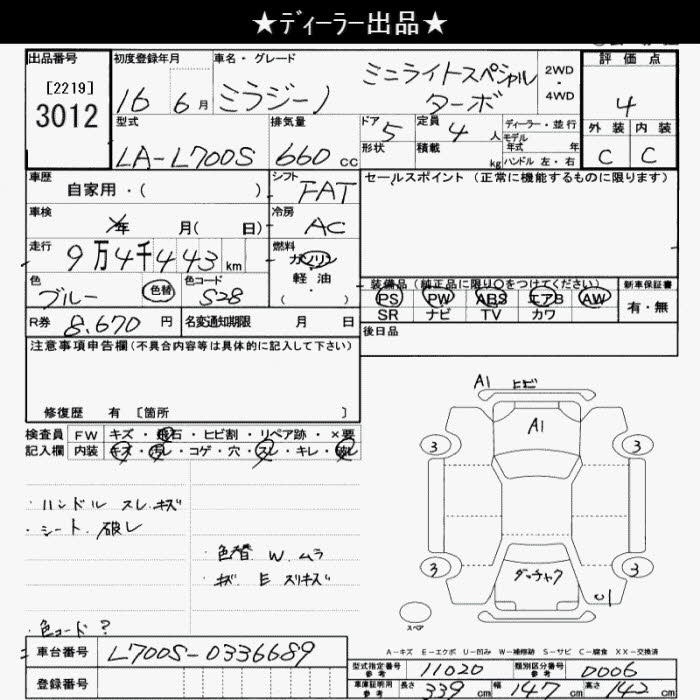 ★ディーラー出品★
出品番号 初度登録年月 車名・グレード 評価点
[2219] 3012 16 6月 ミラジーノ ミニライトスペシャル ターボ 2WD・4WD 4
型式 排気量 ドア 定員 ディーラー・並行 外装 内装
LA-L700S 660cc 5 4人 モデル年式 年 C C
形状 積載 kg ハンドル 左・右
車歴 シフト セールスポイント(正常に機能するものに限ります)
自家用・( ) FAT
車検 冷房
年 月( 日) AC
走行 燃料
9万4千443km ガソリン
軽油
・( )
色 色替 色コード 装備品(純正品に限り○をつけてください) 新車保証書
ブルー S28 PS PW ABS エアB AW 有・無
SR ナビ TV カワ
R券 8,670円 名変通知期限 月 日 後日品
注意事項申告欄(不具合内容等は具体的に記入して下さい)
修復歴 有 [箇所 ]
検査員 FW キズ・飛石・ヒビ割・リペア跡・×要
記入欄 内装 キズ・汚レ・コゲ・穴・スレ・キレ・破レ
・ハンドル スレ.キズ
・シート.破レ
色替 W.ムラ
キズ E スリキズ
色コード?
A1 ヒビ
A1
3 3
3 3
ダッチャク
U1
スペア
A-キズ E-エクボ U-凹み W-補修跡 S-サビ C-腐食 XX-交換済
車台番号 L700S-0336689 型式指定番号 参考 11020 類別区分番号 参考 0006
登録番号 車庫証明用 参考 長さ 339cm 幅 147cm 高さ 142cm